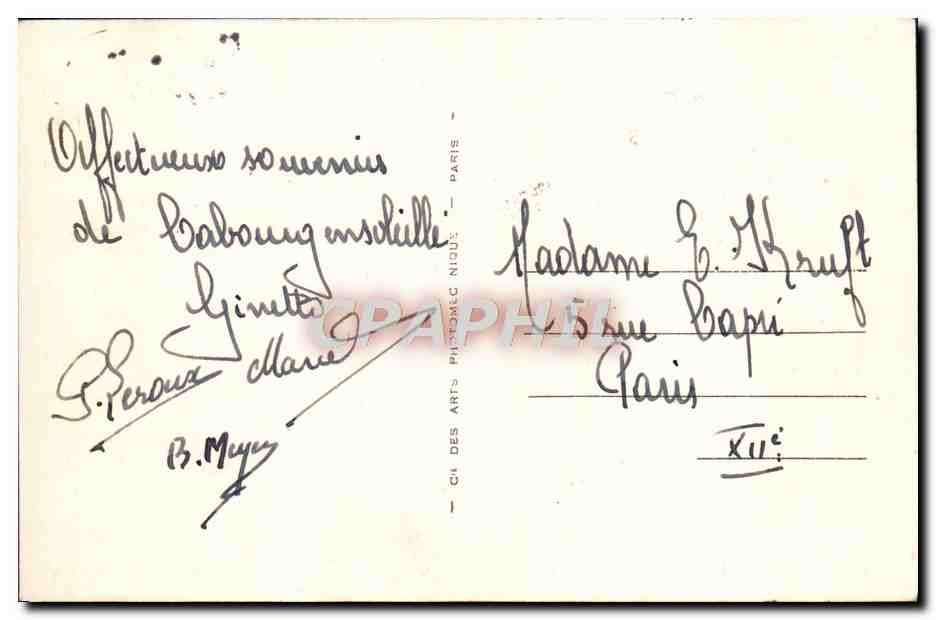 Affectueux souvenirs
de Cabourg ensoleillé
Ginette
P. Leroux Marie
B. Meyer
— CIE DES ARTS PHOTOMECANIQUE — PARIS —
CPAPHIL
Madame E. Kruft
5 rue Capri
Paris
XIIe